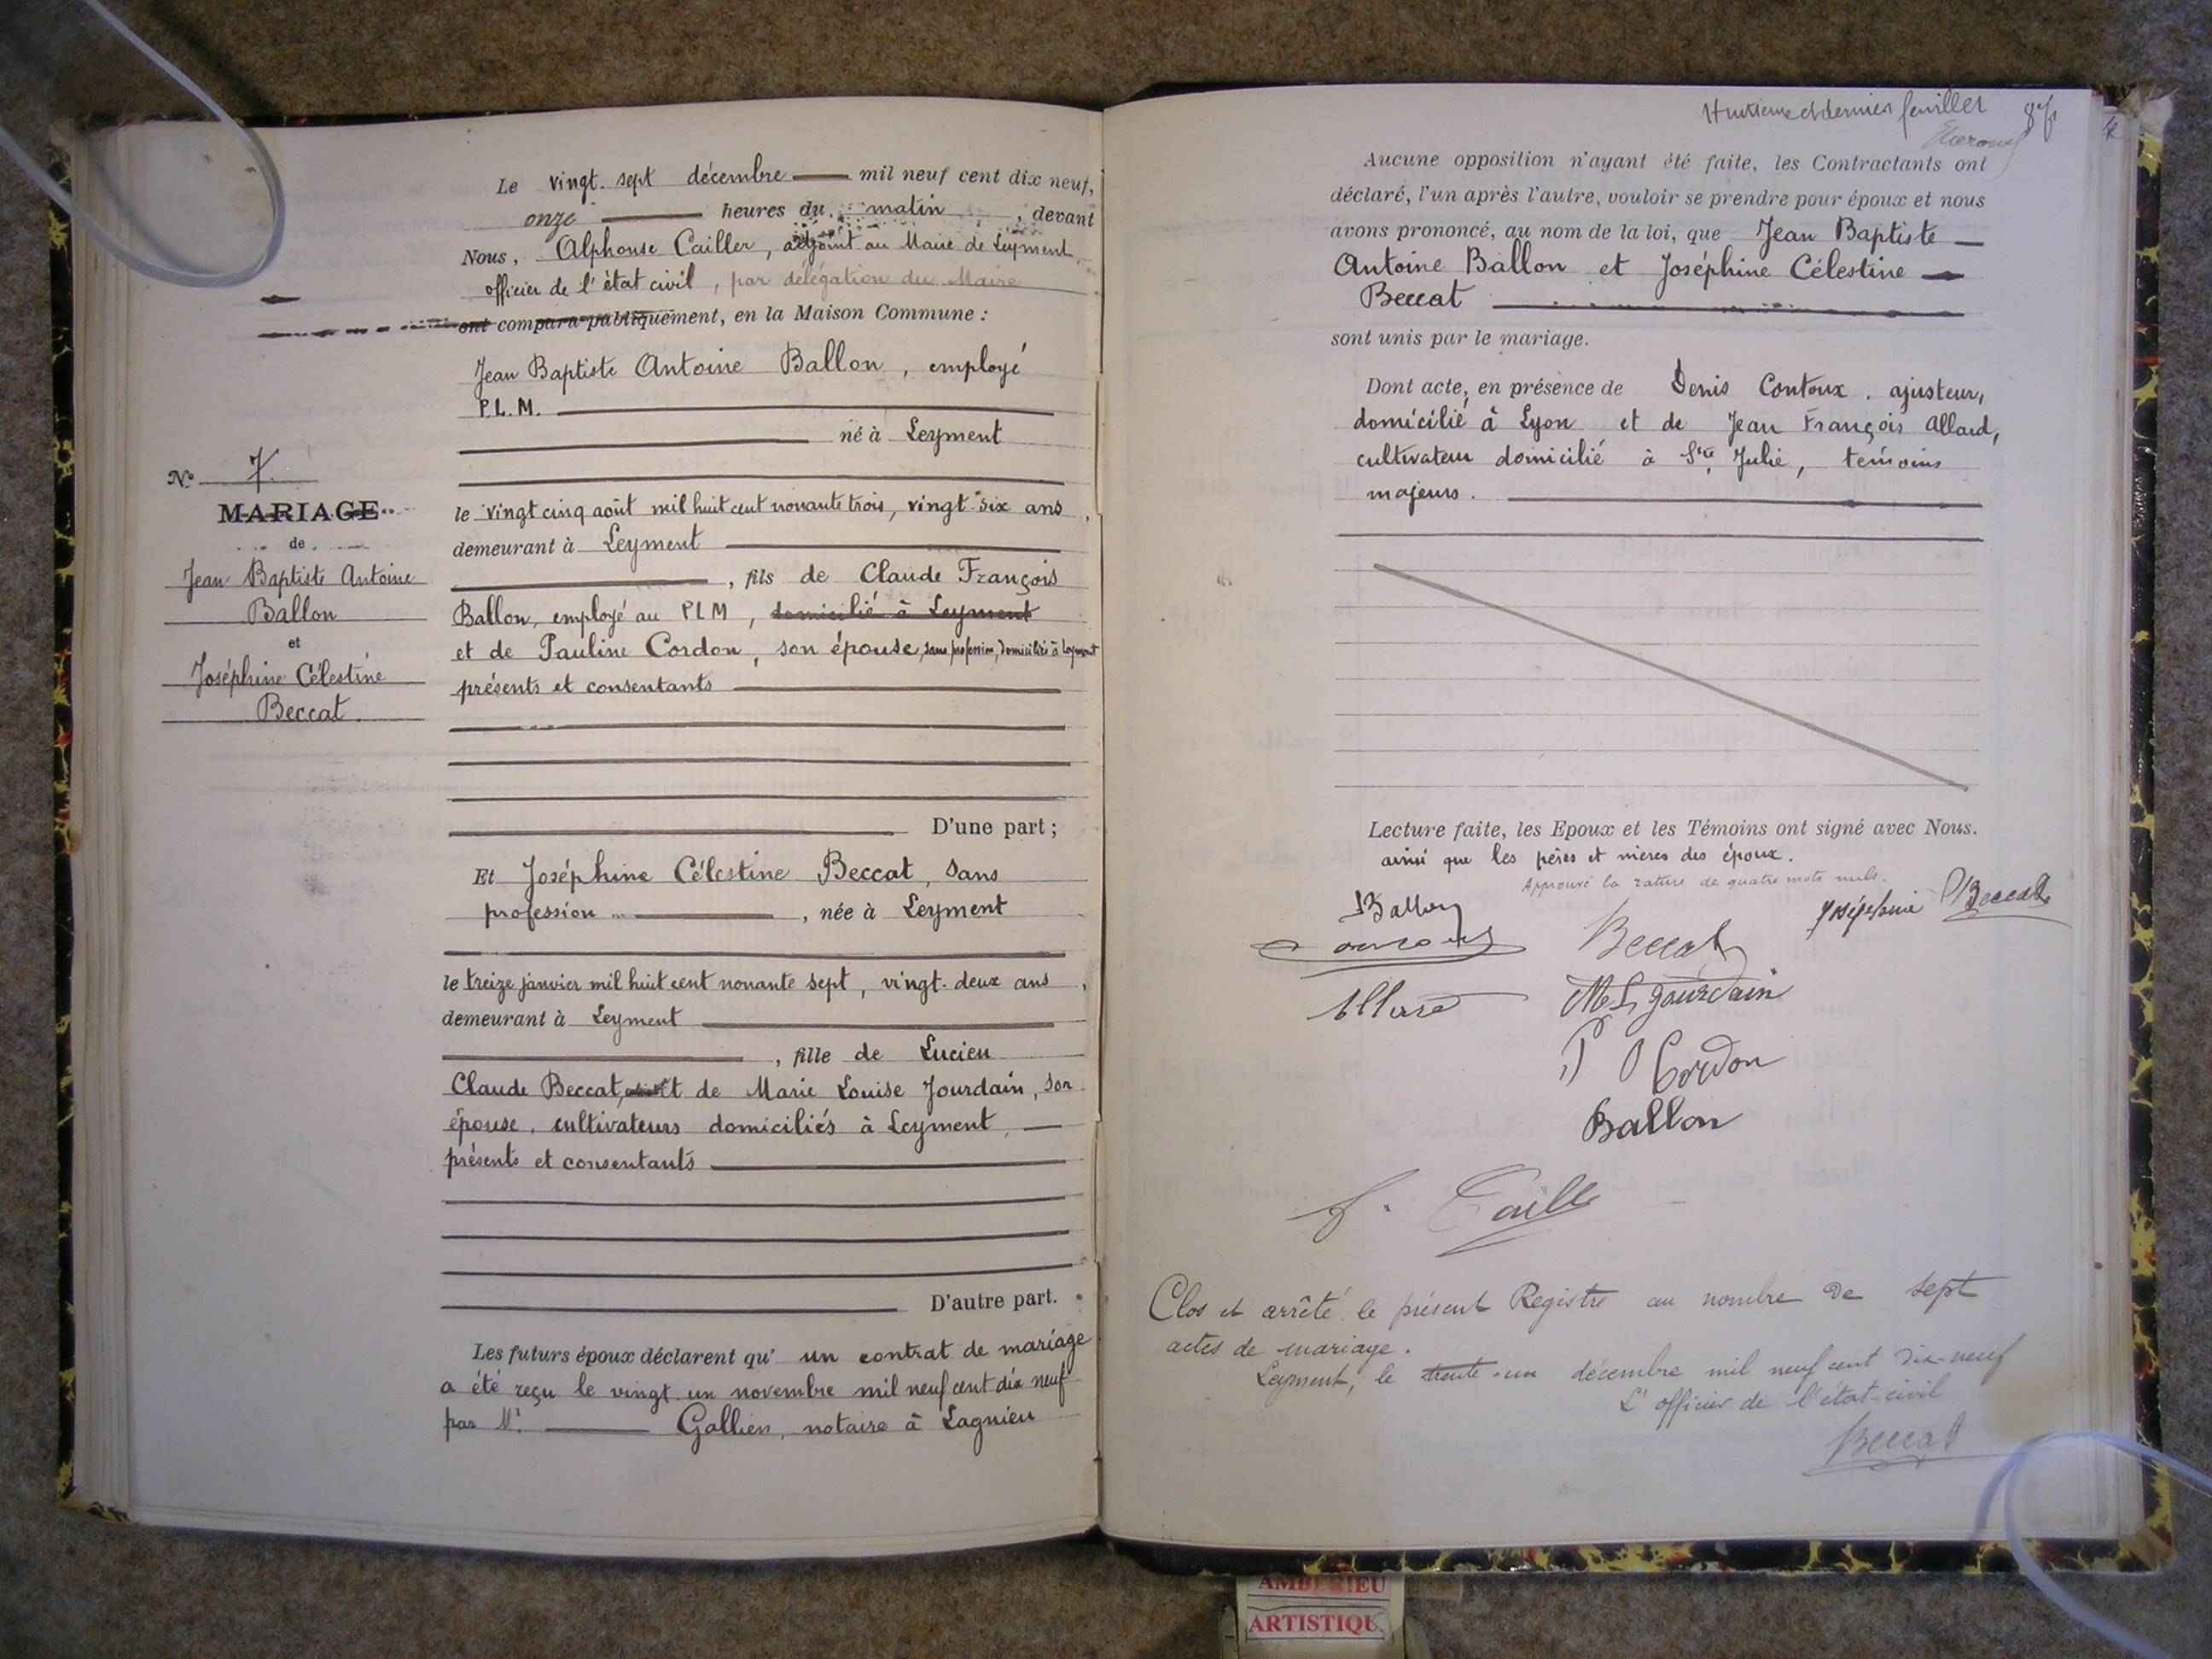 Le vingt-sept décembre mil neuf cent dix neuf,
onze heures du matin, devant
Nous, Alphonse Cailler, adjoint au Maire de Leyment,
officier de l'état civil, par délégation du Maire
ont comparu publiquement, en la Maison Commune :
Jean Baptiste Antoine Ballon, employé
P.L.M.
né à Leyment
le vingt cinq août mil huit cent nonante trois, vingt-six ans,
demeurant à Leyment
, fils de Claude François
Ballon, employé au PLM, domicilié à Leyment
et de Pauline Cordon, son épouse, sans profession, domiciliés à Leyment
présents et consentants
D'une part ;
Et Joséphine Célestine Beccat, sans
profession, née à Leyment
le treize janvier mil huit cent nonante sept, vingt-deux ans,
demeurant à Leyment
, fille de Lucien
Claude Beccat, et de Marie Louise Jourdain, son
épouse, cultivateurs domiciliés à Leyment,
présents et consentants
D'autre part.
Les futurs époux déclarent qu'un contrat de mariage
a été reçu le vingt un novembre mil neuf cent dix neuf
par Me Gallien, notaire à Lagnieu
N° 7.
MARIAGE
de
Jean Baptiste Antoine
Ballon
et
Joséphine Célestine
Beccat.
Huitième et dernier feuillet
Aucune opposition n'ayant été faite, les Contractants ont
déclaré, l'un après l'autre, vouloir se prendre pour époux et nous
avons prononcé, au nom de la loi, que Jean Baptiste
Antoine Ballon et Joséphine Célestine
Beccat
sont unis par le mariage.
Dont acte, en présence de Denis Contoux, ajusteur,
domicilié à Lyon et de Jean François Allard,
cultivateur domicilié à Ste Julie, témoins
majeurs.
Lecture faite, les Epoux et les Témoins ont signé avec Nous.
ainsi que les pères et mères des époux.
Approuvé la rature de quatre mots nuls.
Ballon
Joséphine Beccat
Beccat
Allard
M L Jourdain
P Cordon
Ballon
Clos et arrêté le présent Registre au nombre de sept
actes de mariage.
Leyment, le trente-un décembre mil neuf cent dix-neuf
L'officier de l'état-civil
Beccat
AMBERIEU
ARTISTIQU